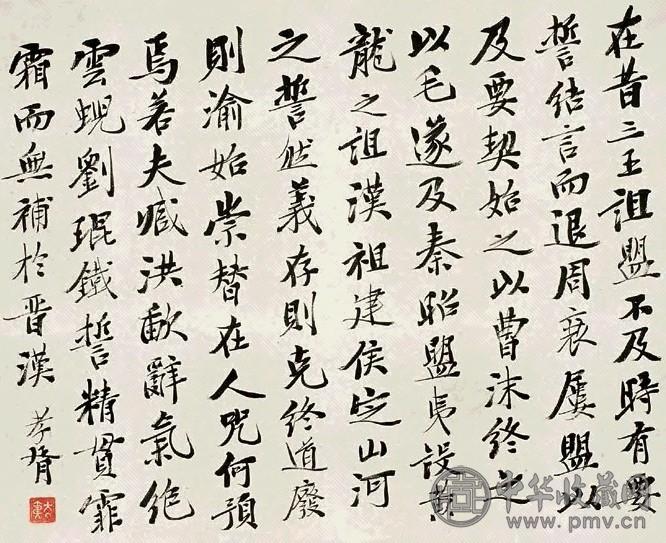 在昔三王詛盟不及時有要
誓結言而退周衰屢盟以
及要契始之以曹沫終之
以毛遂及秦昭盟夷設黄
龍之詛漢祖建侯定山河
之誓然義存則克終道廢
則渝始崇替在人咒何預
焉若夫臧洪歃辭氣绝
雲蜺劉琨鐵誓精貫霏
霜而無補於晋漢
孝胥
中华收藏网
www.pmv.cn